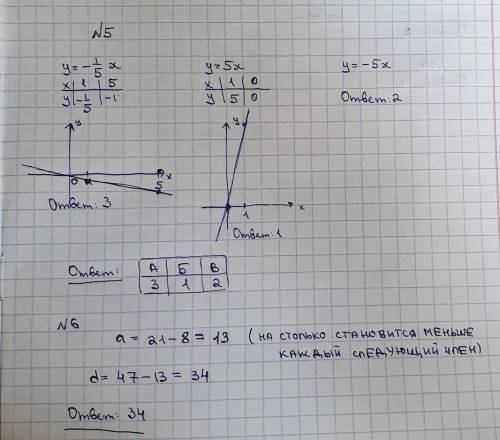 №5
y = -1/5 x
x | 1 | 5
y | -1/5 | -1
y
0 1 5 x
Ответ: 3
y = 5x
x | 1 | 0
y | 5 | 0
y
1 x
Ответ: 1
y = -5x
Ответ: 2
Ответ:
А | Б | В
3 | 1 | 2
№6
a = 21 - 8 = 13 (на столько становится меньше
каждый следующий член)
d = 47 - 13 = 34
Ответ: 34